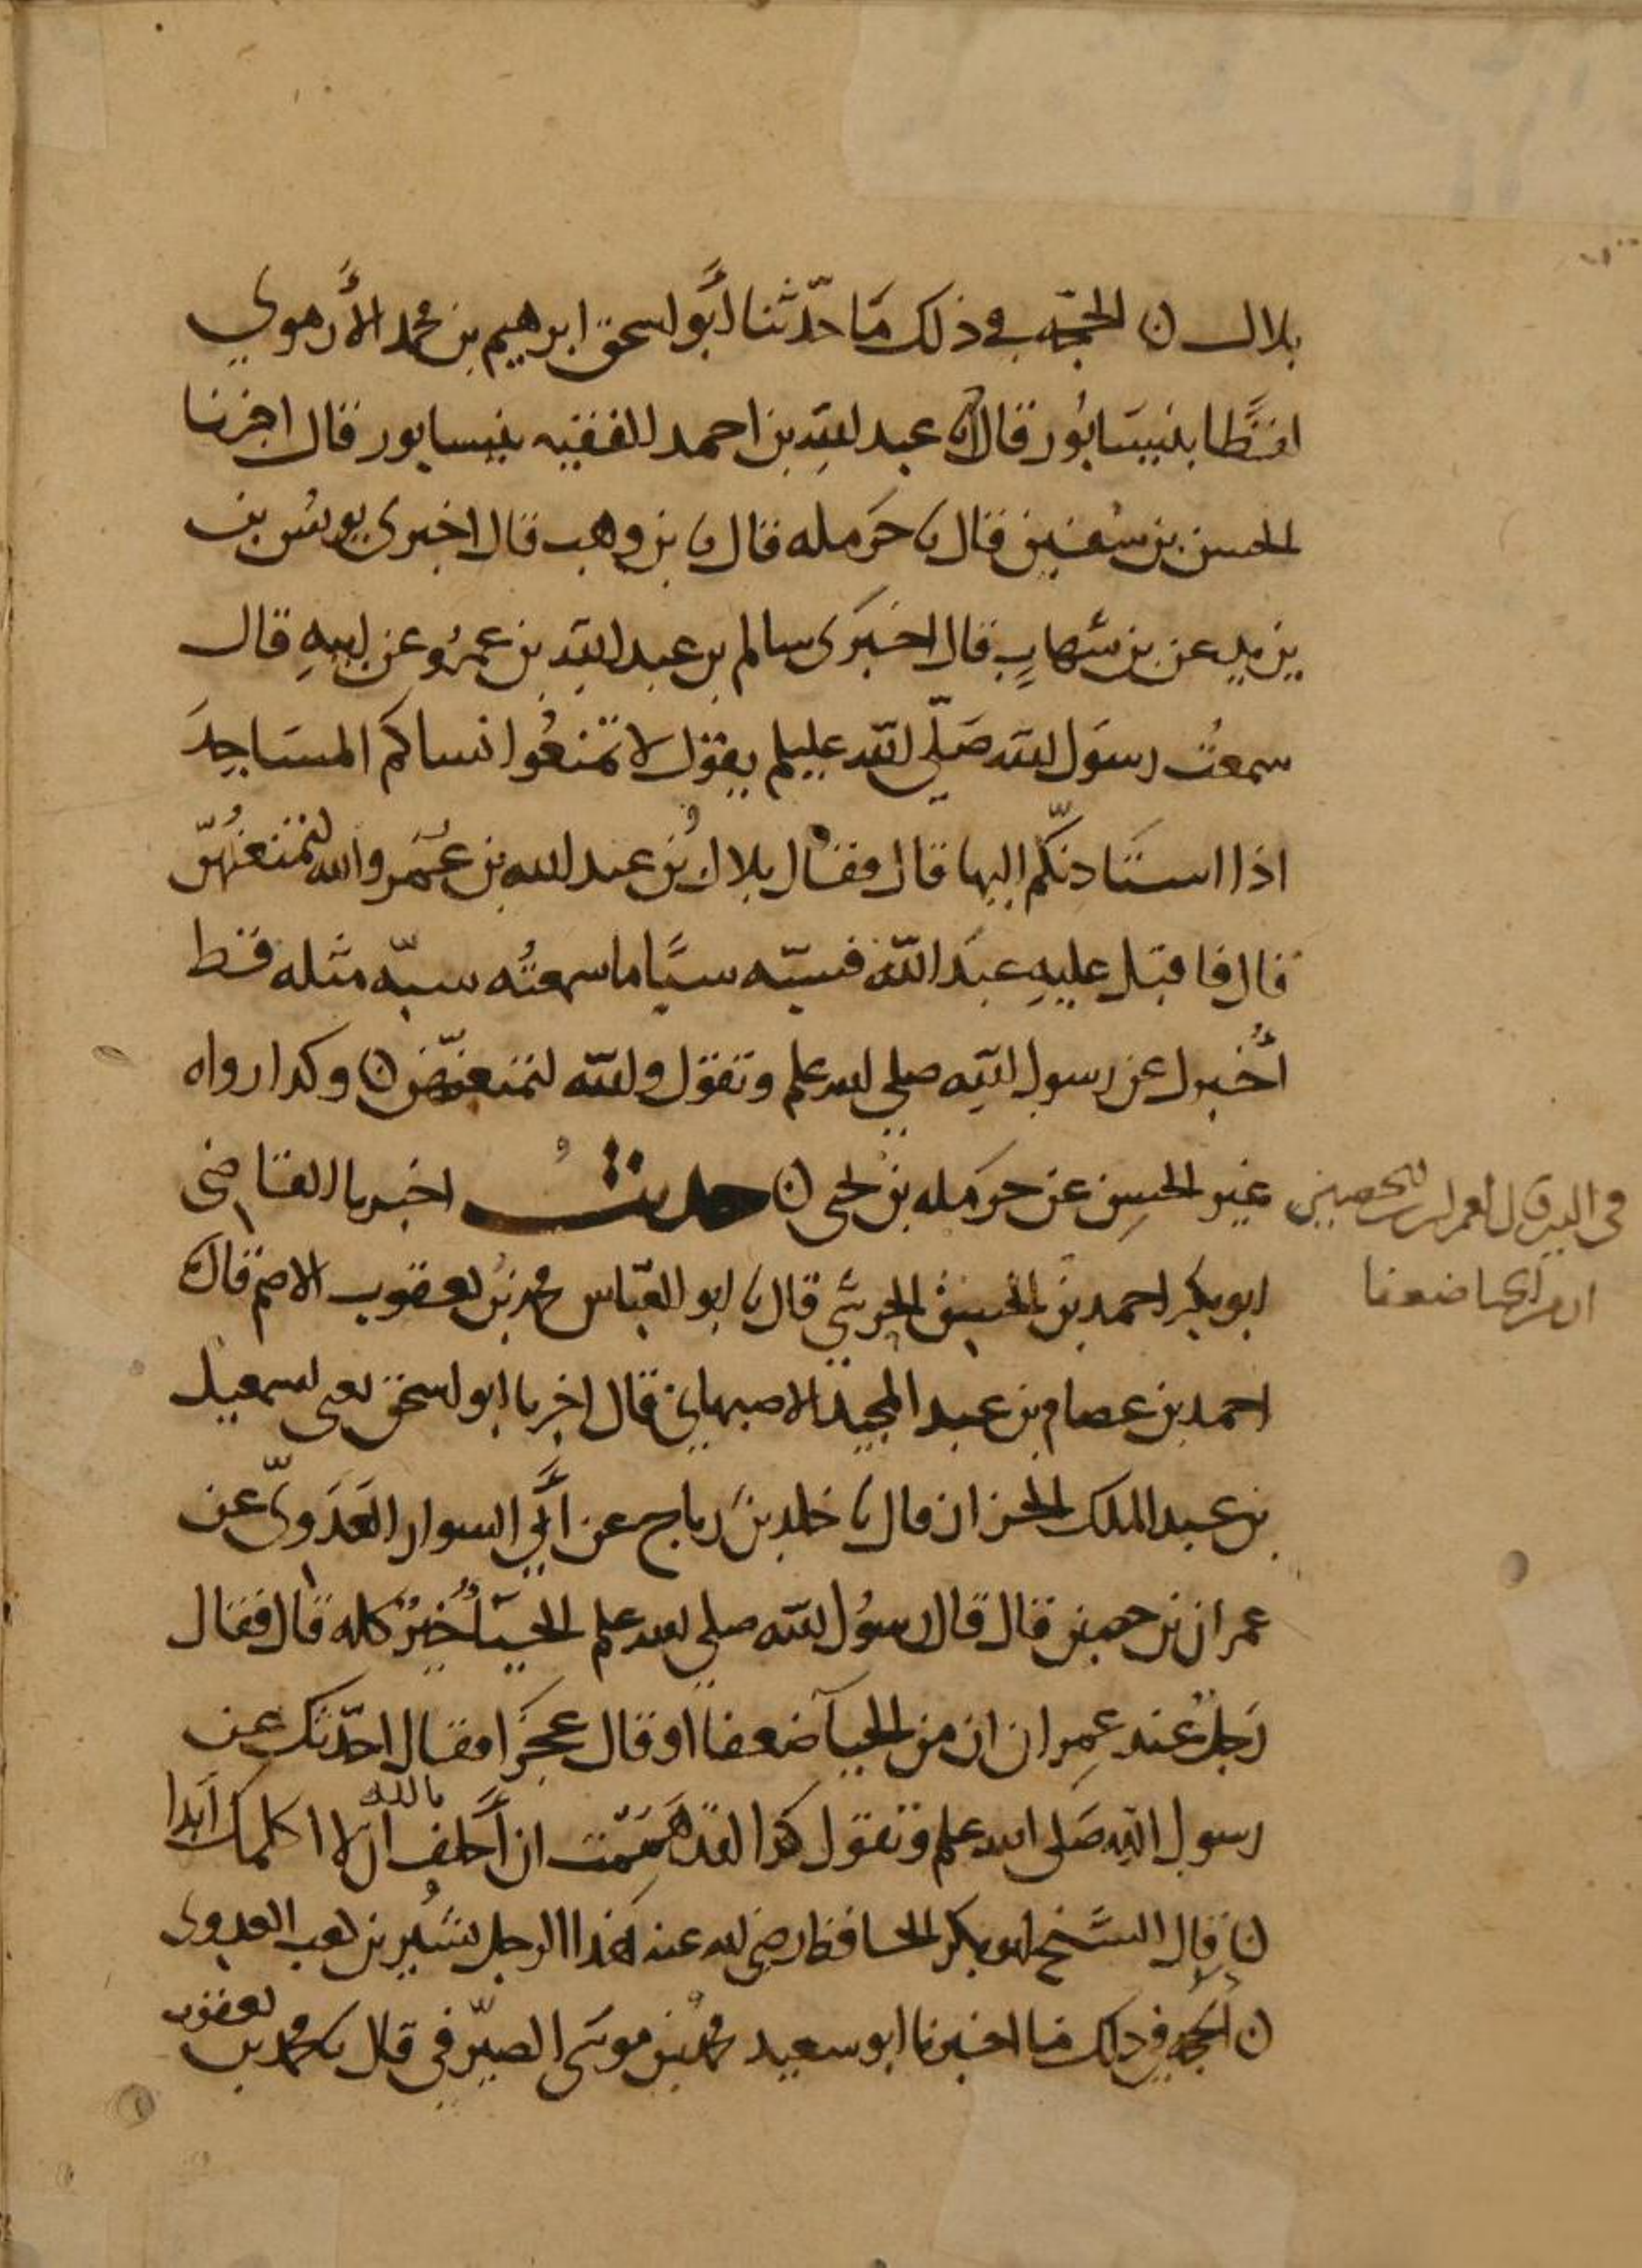 بلال ن الحجة في ذلك مَا حدّثنا أبو اسحق ابرهيم بن محمد الأرموي
لفظا بنيسَابُور قال انا عبد الله بن احمد الفقيه بنيسابور قال اخبرنا
الحسن بن سفين قال نا حَرمله قال نا بن وهب قال اخبرني يونس بن
يزيد عن بن شهابٍ قال اخبَرَني سالم بن عبد الله بن عمرُو عن ابيهِ قال
سمعتُ رسوَل الله صَلّى الله عليلم يقول لا تمنَعُوا نساكم المسَاجِدَ
اذا استَاذنّكم اليها قال فقال بلالُ بنُ عبد الله بن عُمَر والله لنمنَعُهُنّ
قال فاقبَل عليهِ عبَد الله فسبّه سبًّا ما سمعتُه سبّه مثله قط
أُخبرك عن رسول اللهِ صلى الله علم وتقول والله لنمنعهنّ ن وكذا رواه
غير الحسِن عن حرمَله بن يحيى ن حديثٌ اخبرنا القاضي
ابو بكر احمد بن الحسين الحرشي قال نا ابو العبّاس محمد بن يعقوب الاصم قال نا
احمد بن عصام بن عبد المجيد الاصبهاني قال اخبرنا ابو اسحق يعني اسمعيل
بن عبد الملك الخزاز قال نا خلد بن رباح عن أبي السوار العَدَويّ عن
عمران بن حصين قال قال رسُول الله صلى الله علم الحيَآُ خيرٌ كله قال فقال
رَجلٌ عند عمِران ان من الحيآ ضعفا او قال عجزًا فقال احدّثك عن
رسول الله صَلى الله علم وتقول كذا لقد همَمت ان أَحلف بالله ان لا اكلمك ابَدا
ن قال الشيخ ابو بكر الحافظ رضي الله عنه هَذا الرجل بُشَير بن كعب العدوي
ن الحجة في ذلك مَا اخبرنا ابو سعيد محمد بن موسَى الصيّرفي قال نا محمد بن يعقوب